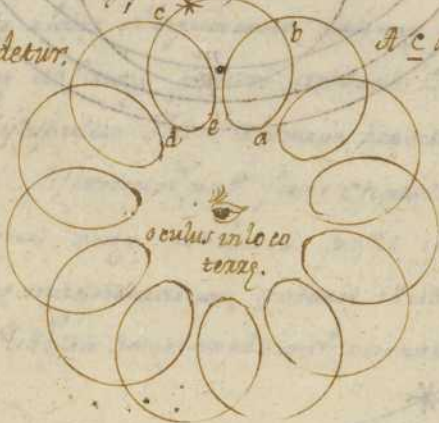 c
b
detur.
A c
d e a
oculus in loco
terrę.